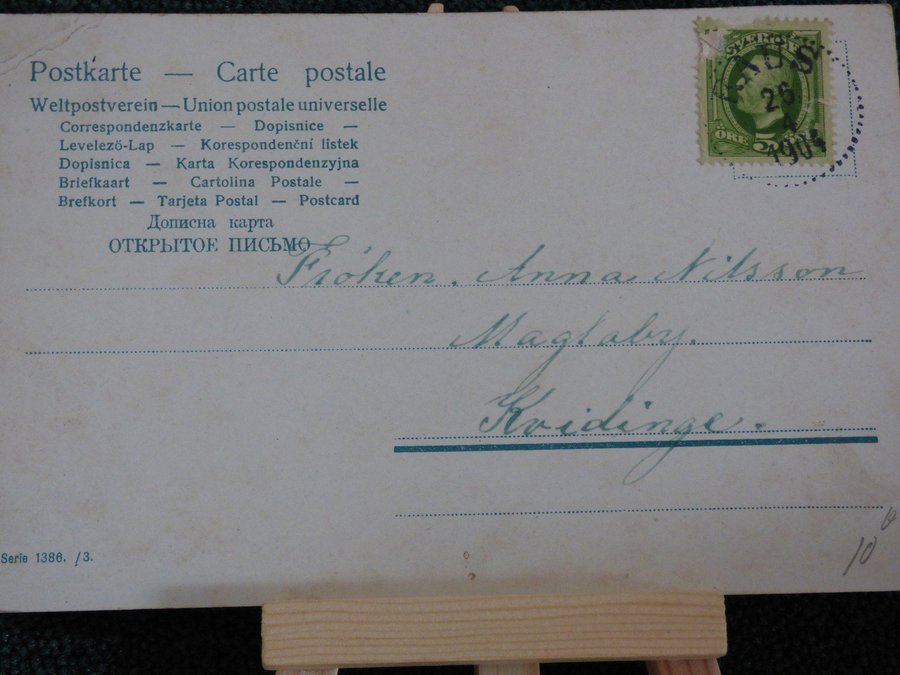 Postkarte — Carte postale
Weltpostverein — Union postale universelle
Correspondenzkarte — Dopisnice —
Levelező-Lap — Korespondenční listek
Dopisnica — Karta Korespondenzyjna
Briefkaart — Cartolina Postale —
Brefkort — Tarjeta Postal — Postcard
Дописна карта
ОТКРЫТОЕ ПИСЬМО
SVERIGE
RAUS
26
4
1904
ÖRE 5 ÖRE
Fröken. Anna Nilsson
Magtaby.
Kvidinge.
Serie 1386. /3.
10